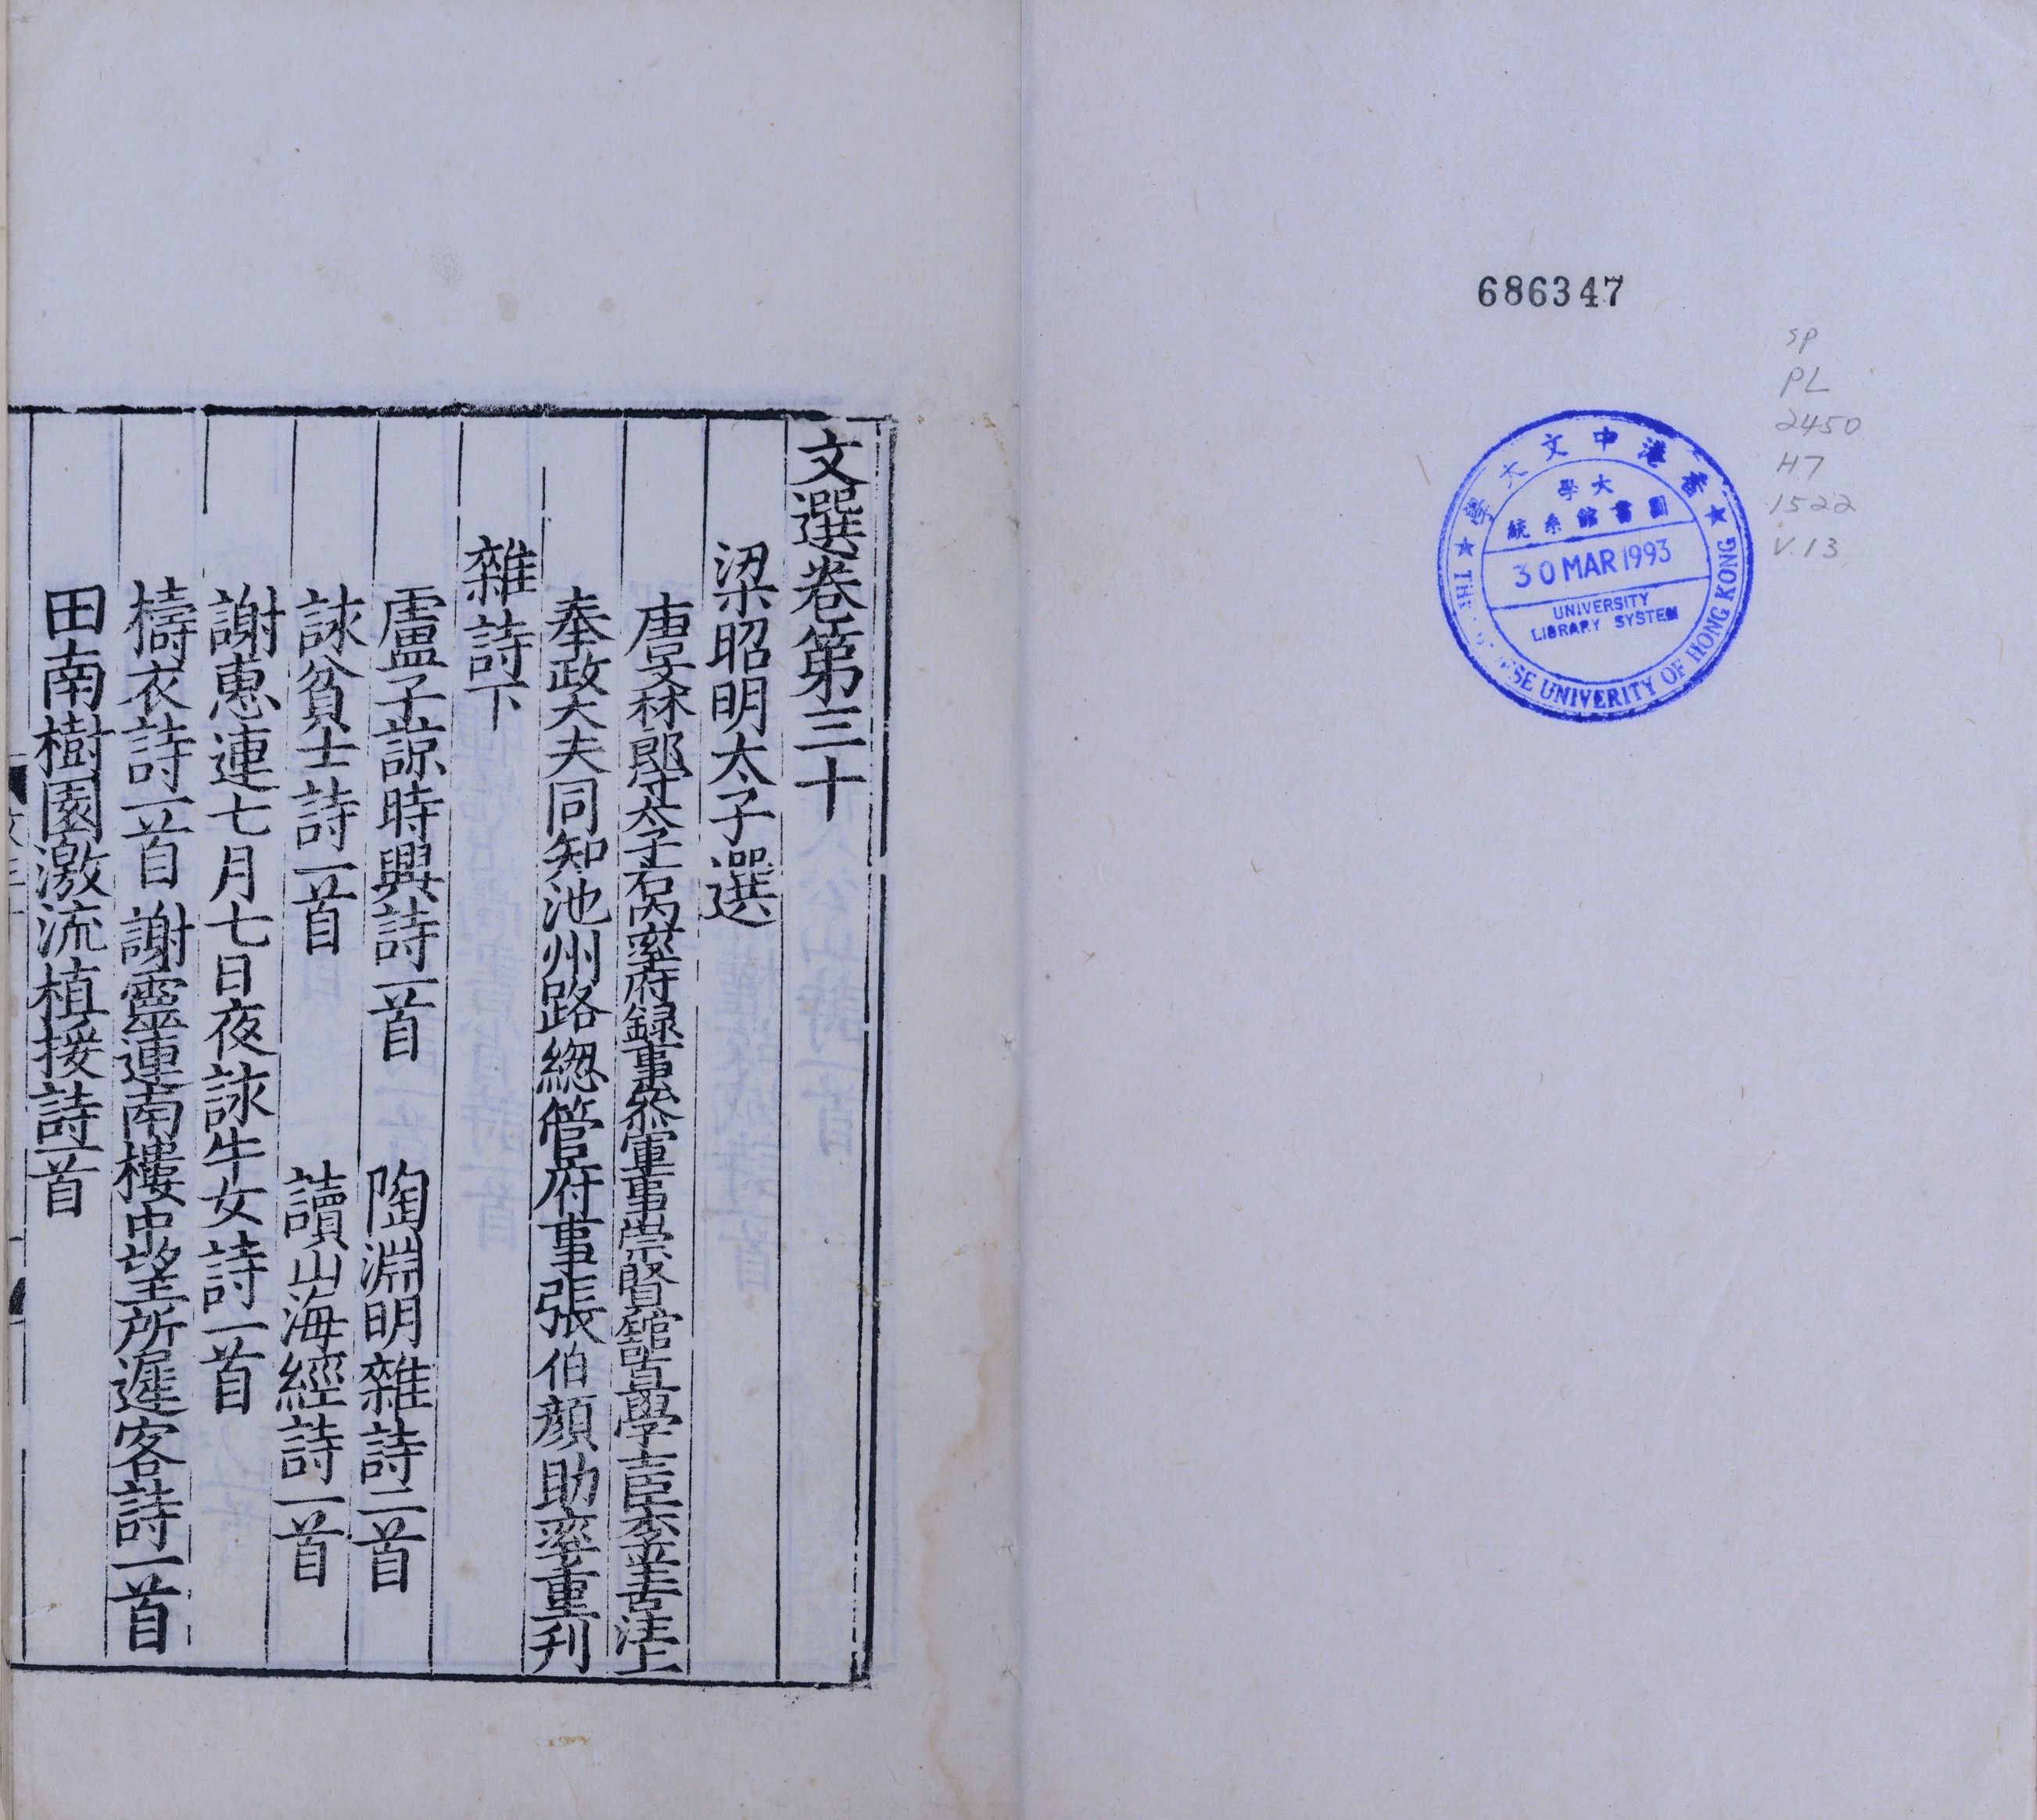 686347
sp
PL
2450
H7
1522
V.13
香港中文大學
大學
圖書館系統
30 MAR 1993
UNIVERSITY
LIBRARY SYSTEM
UNIVERITY OF HONG KONG
文選卷第三十
梁昭明太子選
唐文林郎守太子右内率府録事叅軍事崇賢館直學士臣李善注上
奉政大夫同知池州路緫管府事張伯顔助率重刊
雜詩下
盧子諒時興詩一首 陶淵明雜詩二首
詠貧士詩一首 讀山海經詩一首
謝惠連七月七日夜詠牛女詩一首
檮衣詩一首 謝靈運南樓中望所遲客詩一首
田南樹園激流植援詩一首